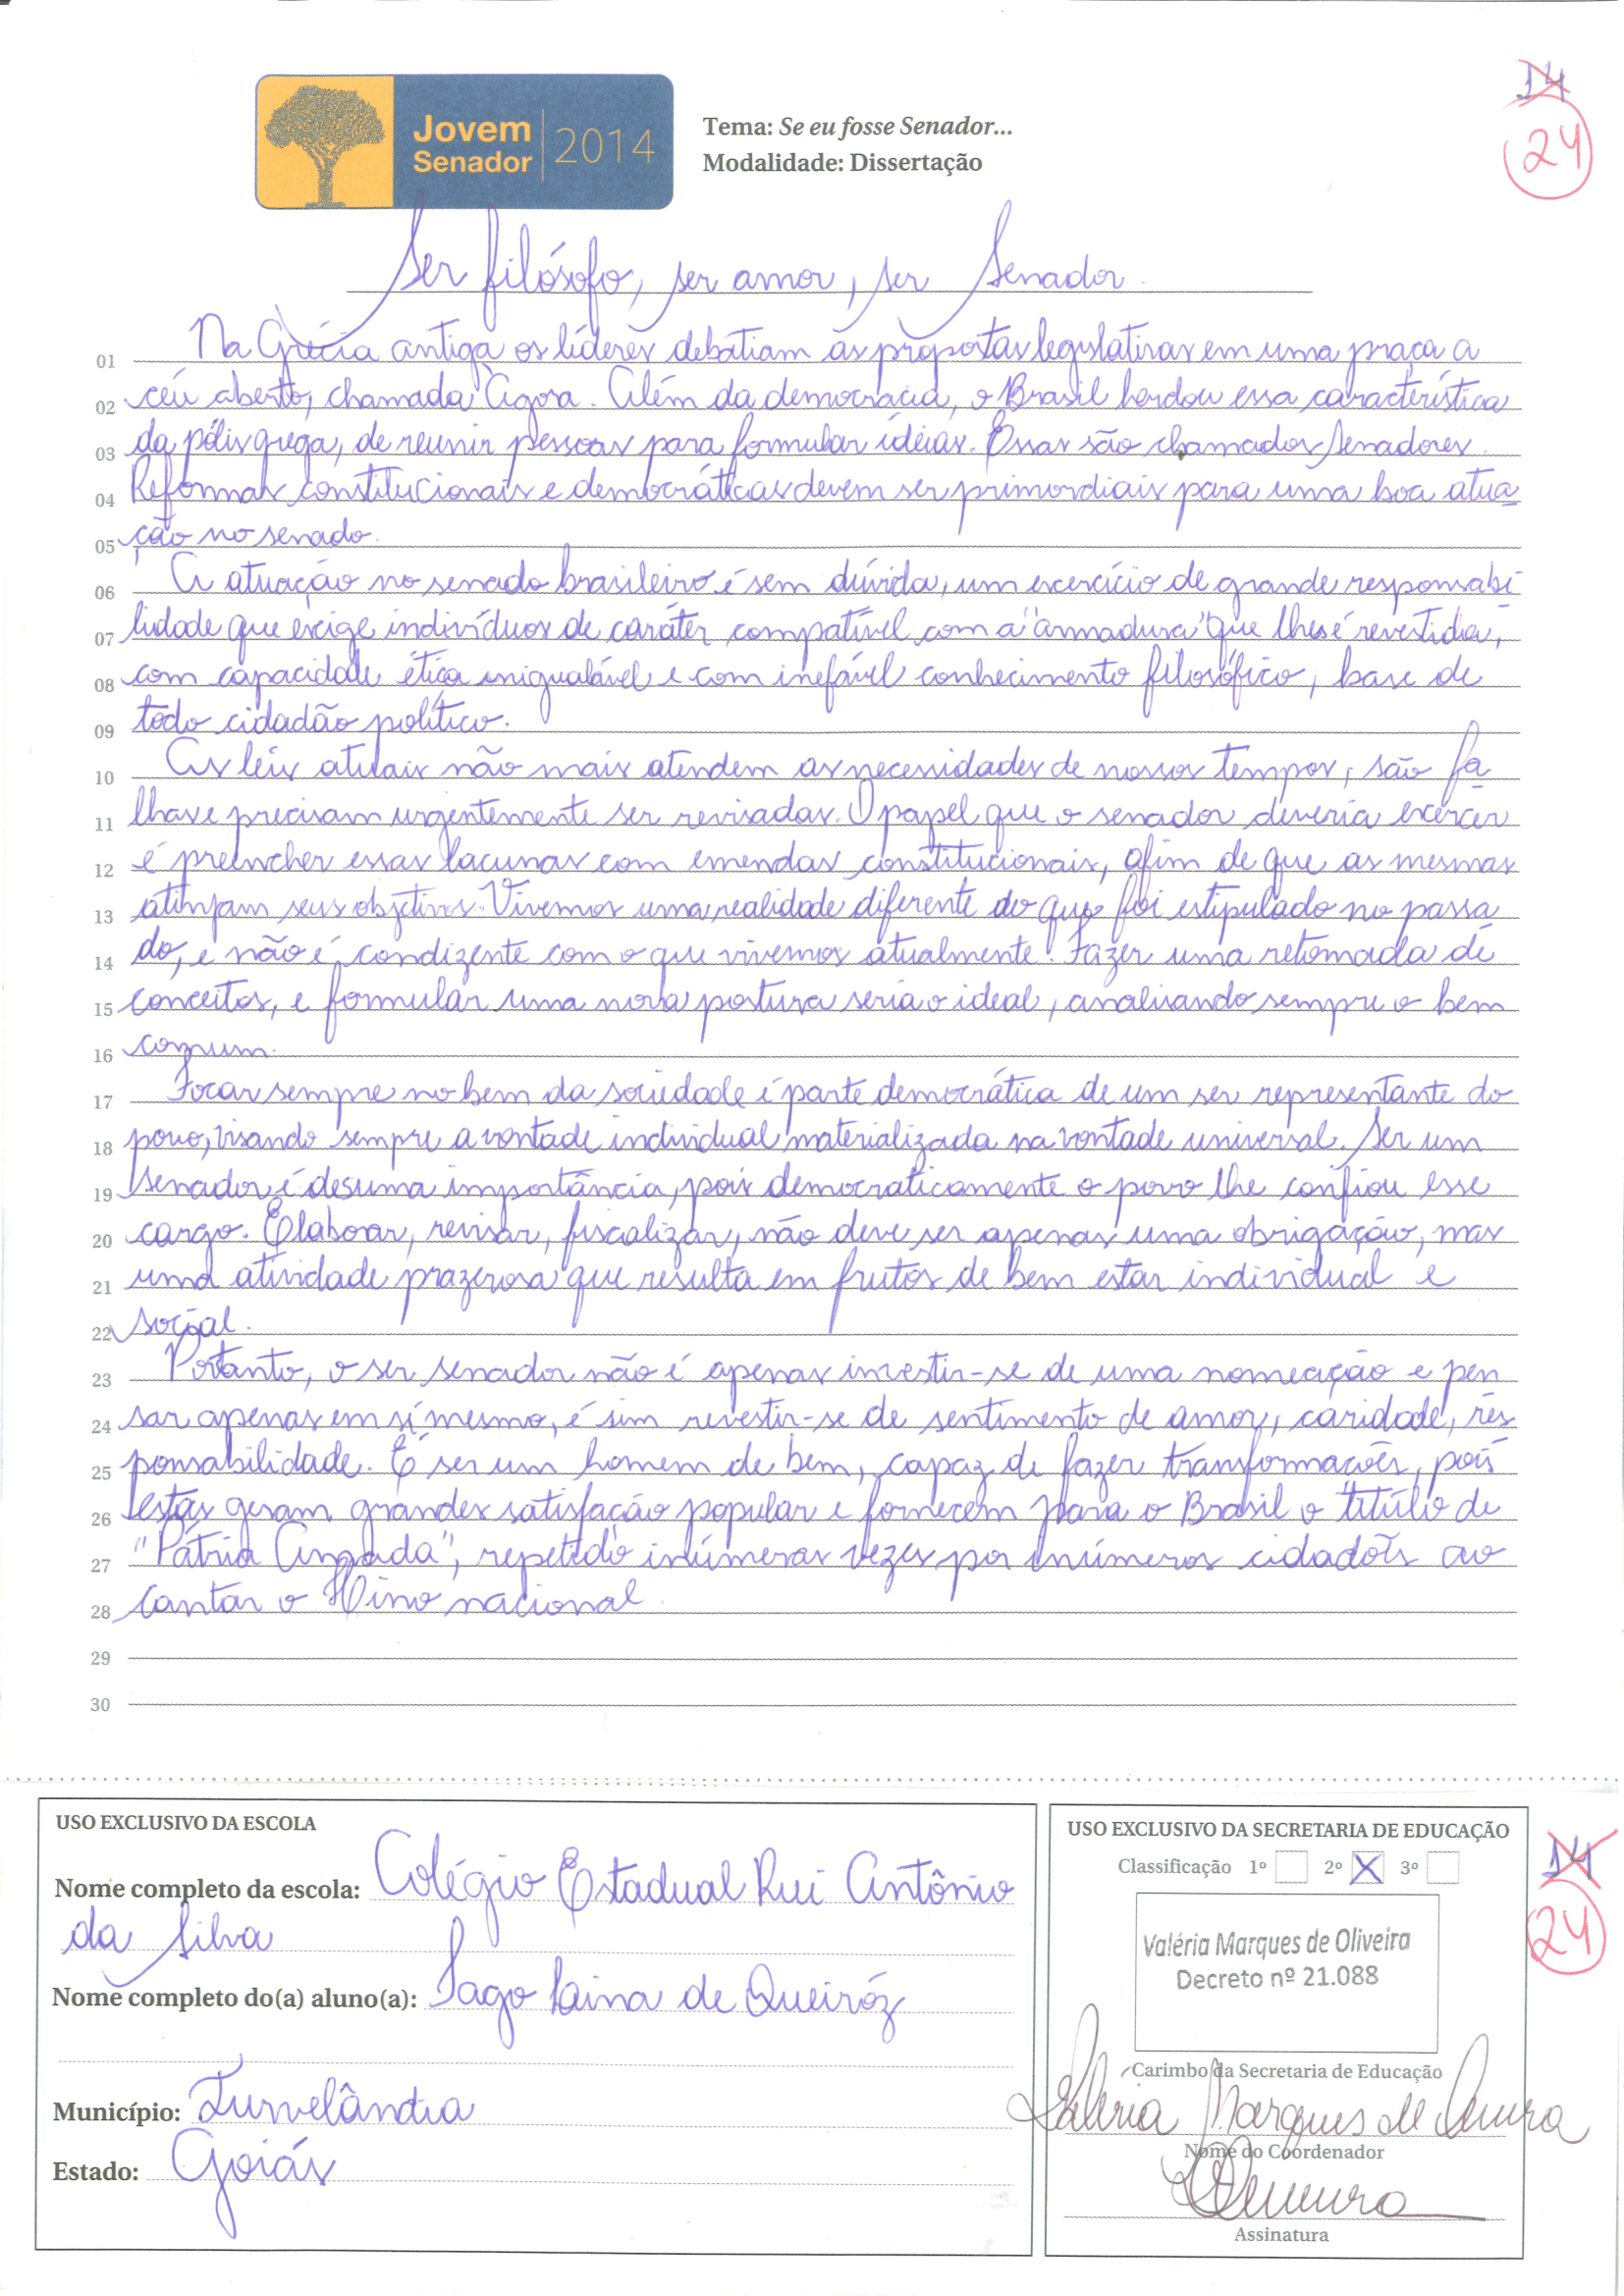 Jovem
Senador
2014
Tema: Se eu fosse Senador...
Modalidade: Dissertação
14
24
Ser filósofo, ser amor, ser Senador.
01 Na Grécia antiga os líderes debatiam as propostas legislativas em uma praça a
02 céu aberto, chamada Ágora. Além da democracia, o Brasil herdou essa característica
03 da pólis grega, de reunir pessoas para formular idéias. Essas são chamados Senadores.
04 Reformas constitucionais e democráticas devem ser primordiais para uma boa atua
05 ção no senado.
06 A atuação no senado brasileiro é sem dúvida, um exercício de grande responsabi
07 lidade que exige indivíduos de caráter compatível com a "armadura" que lhes é revestida,
08 com capacidade ética inigualável e com inefável conhecimento filosófico, base de
09 todo cidadão político.
10 As leis atuais não mais atendem as necessidades de nossos tempos, são fa
11 lhas e precisam urgentemente ser revisadas. O papel que o senador deveria exercer
12 é preencher essas lacunas com emendas constitucionais, afim de que as mesmas
13 atinjam seus objetivos. Vivemos uma realidade diferente do que foi estipulado no passa
14 do, e não é condizente com o que vivemos atualmente. Fazer uma retomada de
15 conceitos, e formular uma nova postura seria o ideal, analisando sempre o bem
16 comum.
17 Focar sempre no bem da sociedade é parte democrática de um ser representante do
18 povo, visando sempre a vontade individual materializada na vontade universal. Ser um
19 senador é desuma importância, pois democraticamente o povo lhe confiou esse
20 cargo. Elaborar, revisar, fiscalizar, não deve ser apenas uma obrigação, mas
21 uma atividade prazerosa que resulta em frutos de bem estar individual e
22 social.
23 Portanto, o ser senador não é apenas investir-se de uma nomeação e pen
24 sar apenas em sí mesmo, é sim revestir-se de sentimento de amor, caridade, res
25 ponsabilidade. É ser um homem de bem, capaz de fazer transformações, pois
26 estas geram grandes satisfação popular e fornecem para o Brasil o título de
27 "Pátria Amada", repetido inúmeras vezes por inúmeros cidadões ao
28 cantar o Hino nacional.
29
30
USO EXCLUSIVO DA ESCOLA
Nome completo da escola: Colégio Estadual Rui Antônio
da Silva
Nome completo do(a) aluno(a): Iago Paina de Queiróz
Município: Turvelândia
Estado: Goiás
USO EXCLUSIVO DA SECRETARIA DE EDUCAÇÃO
Classificação 1º 2º X 3º
14
24
Valéria Marques de Oliveira
Decreto nº 21.088
Carimbo da Secretaria de Educação
Valéria Marques de Oliveira
Nome do Coordenador
Assinatura